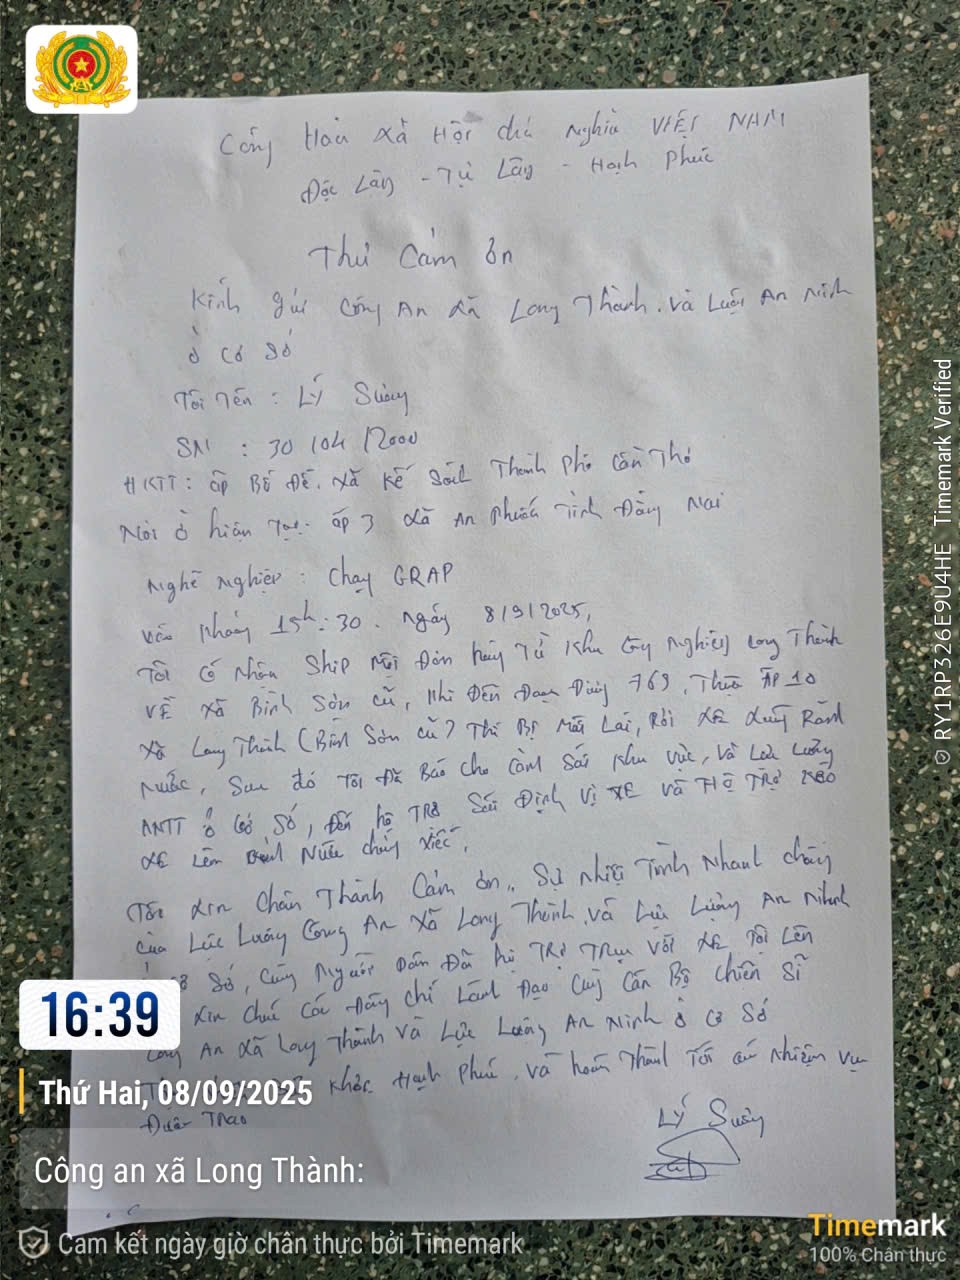 Cộng Hoà Xã Hội chủ Nghĩa VIỆT NAM
Độc Lập - Tự Lập - Hạnh Phúc
Thư Cảm ơn
Kính gửi Công An Xã Long Thành. và Lược An Ninh
ở Cơ Sở
Tôi Tên : LÝ Sường
SN : 30 / 04 / 2000
HKTT: ấp Bồ Đề. Xã Kế Sách Thành Phố Cần Thơ
Nơi ở hiện Tại: ấp 3 Xã An Phước Tỉnh Đồng Nai
Nghề Nghiệp : Chạy GRAP
vào khoảng 15h:30. Ngày 8/9/2025,
Tôi Có Nhận Ship Một Đơn hàng Từ Khu Công Nghiệp Long Thành
VỀ Xã Bình Sơn Cũ, Khi Đến Đoạn Đường 769, Thuộc ẤP 10
Xã Long Thành (Bình Sơn Cũ) Thì Bị Mất Lái, Rơi XE Xuống Rãnh
Nước, Sau đó Tôi Đã Báo cho Cảnh Sát Khu Vực, Và Lực Lượng
ANTT ở Cơ Sở, Đến hỗ TRợ Xác Định Vị XE và Hỗ TRợ KÉO
XE Lên Nước
Tôi Xin Chân Thành Cảm ơn, Sự Nhiệt Tình Nhanh chóng
Của Lực Lượng Công An Xã Long Thành, Và Lực Lượng An Ninh
Sở, Cùng Người Dân Đã hỗ TRợ Trục Vớt XE Tôi Lên
Xin Chúc Các Đồng Chí Lãnh Đạo Cùng Cán Bộ Chiến Sĩ
Công An Xã Long Thành Và Lực Lượng An Ninh ở Cơ Sở
Khỏe Hạnh Phúc. Và hoàn Thành Tốt Nhiệm vụ
Được Trao
LÝ Sường
16:39
Thứ Hai, 08/09/2025
Công an xã Long Thành:
Cam kết ngày giờ chân thực bởi Timemark
Timemark
100% Chân thực
RY1RP326E9U4HE Timemark Verified